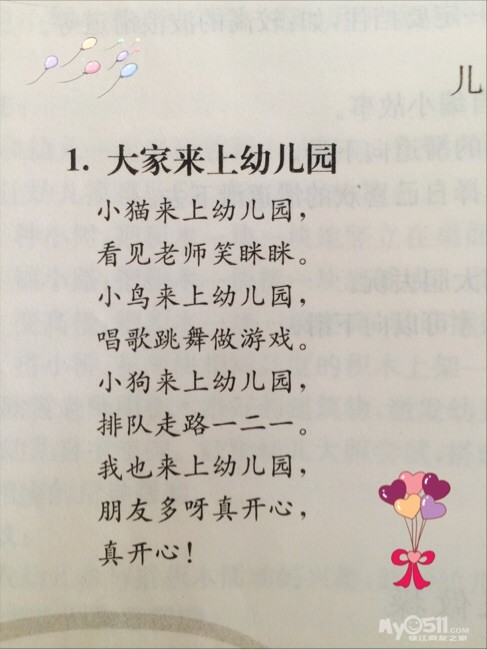 儿
1. 大家来上幼儿园
小猫来上幼儿园，
看见老师笑眯眯。
小鸟来上幼儿园，
唱歌跳舞做游戏。
小狗来上幼儿园，
排队走路一二一。
我也来上幼儿园，
朋友多呀真开心，
真开心！
My0511.com